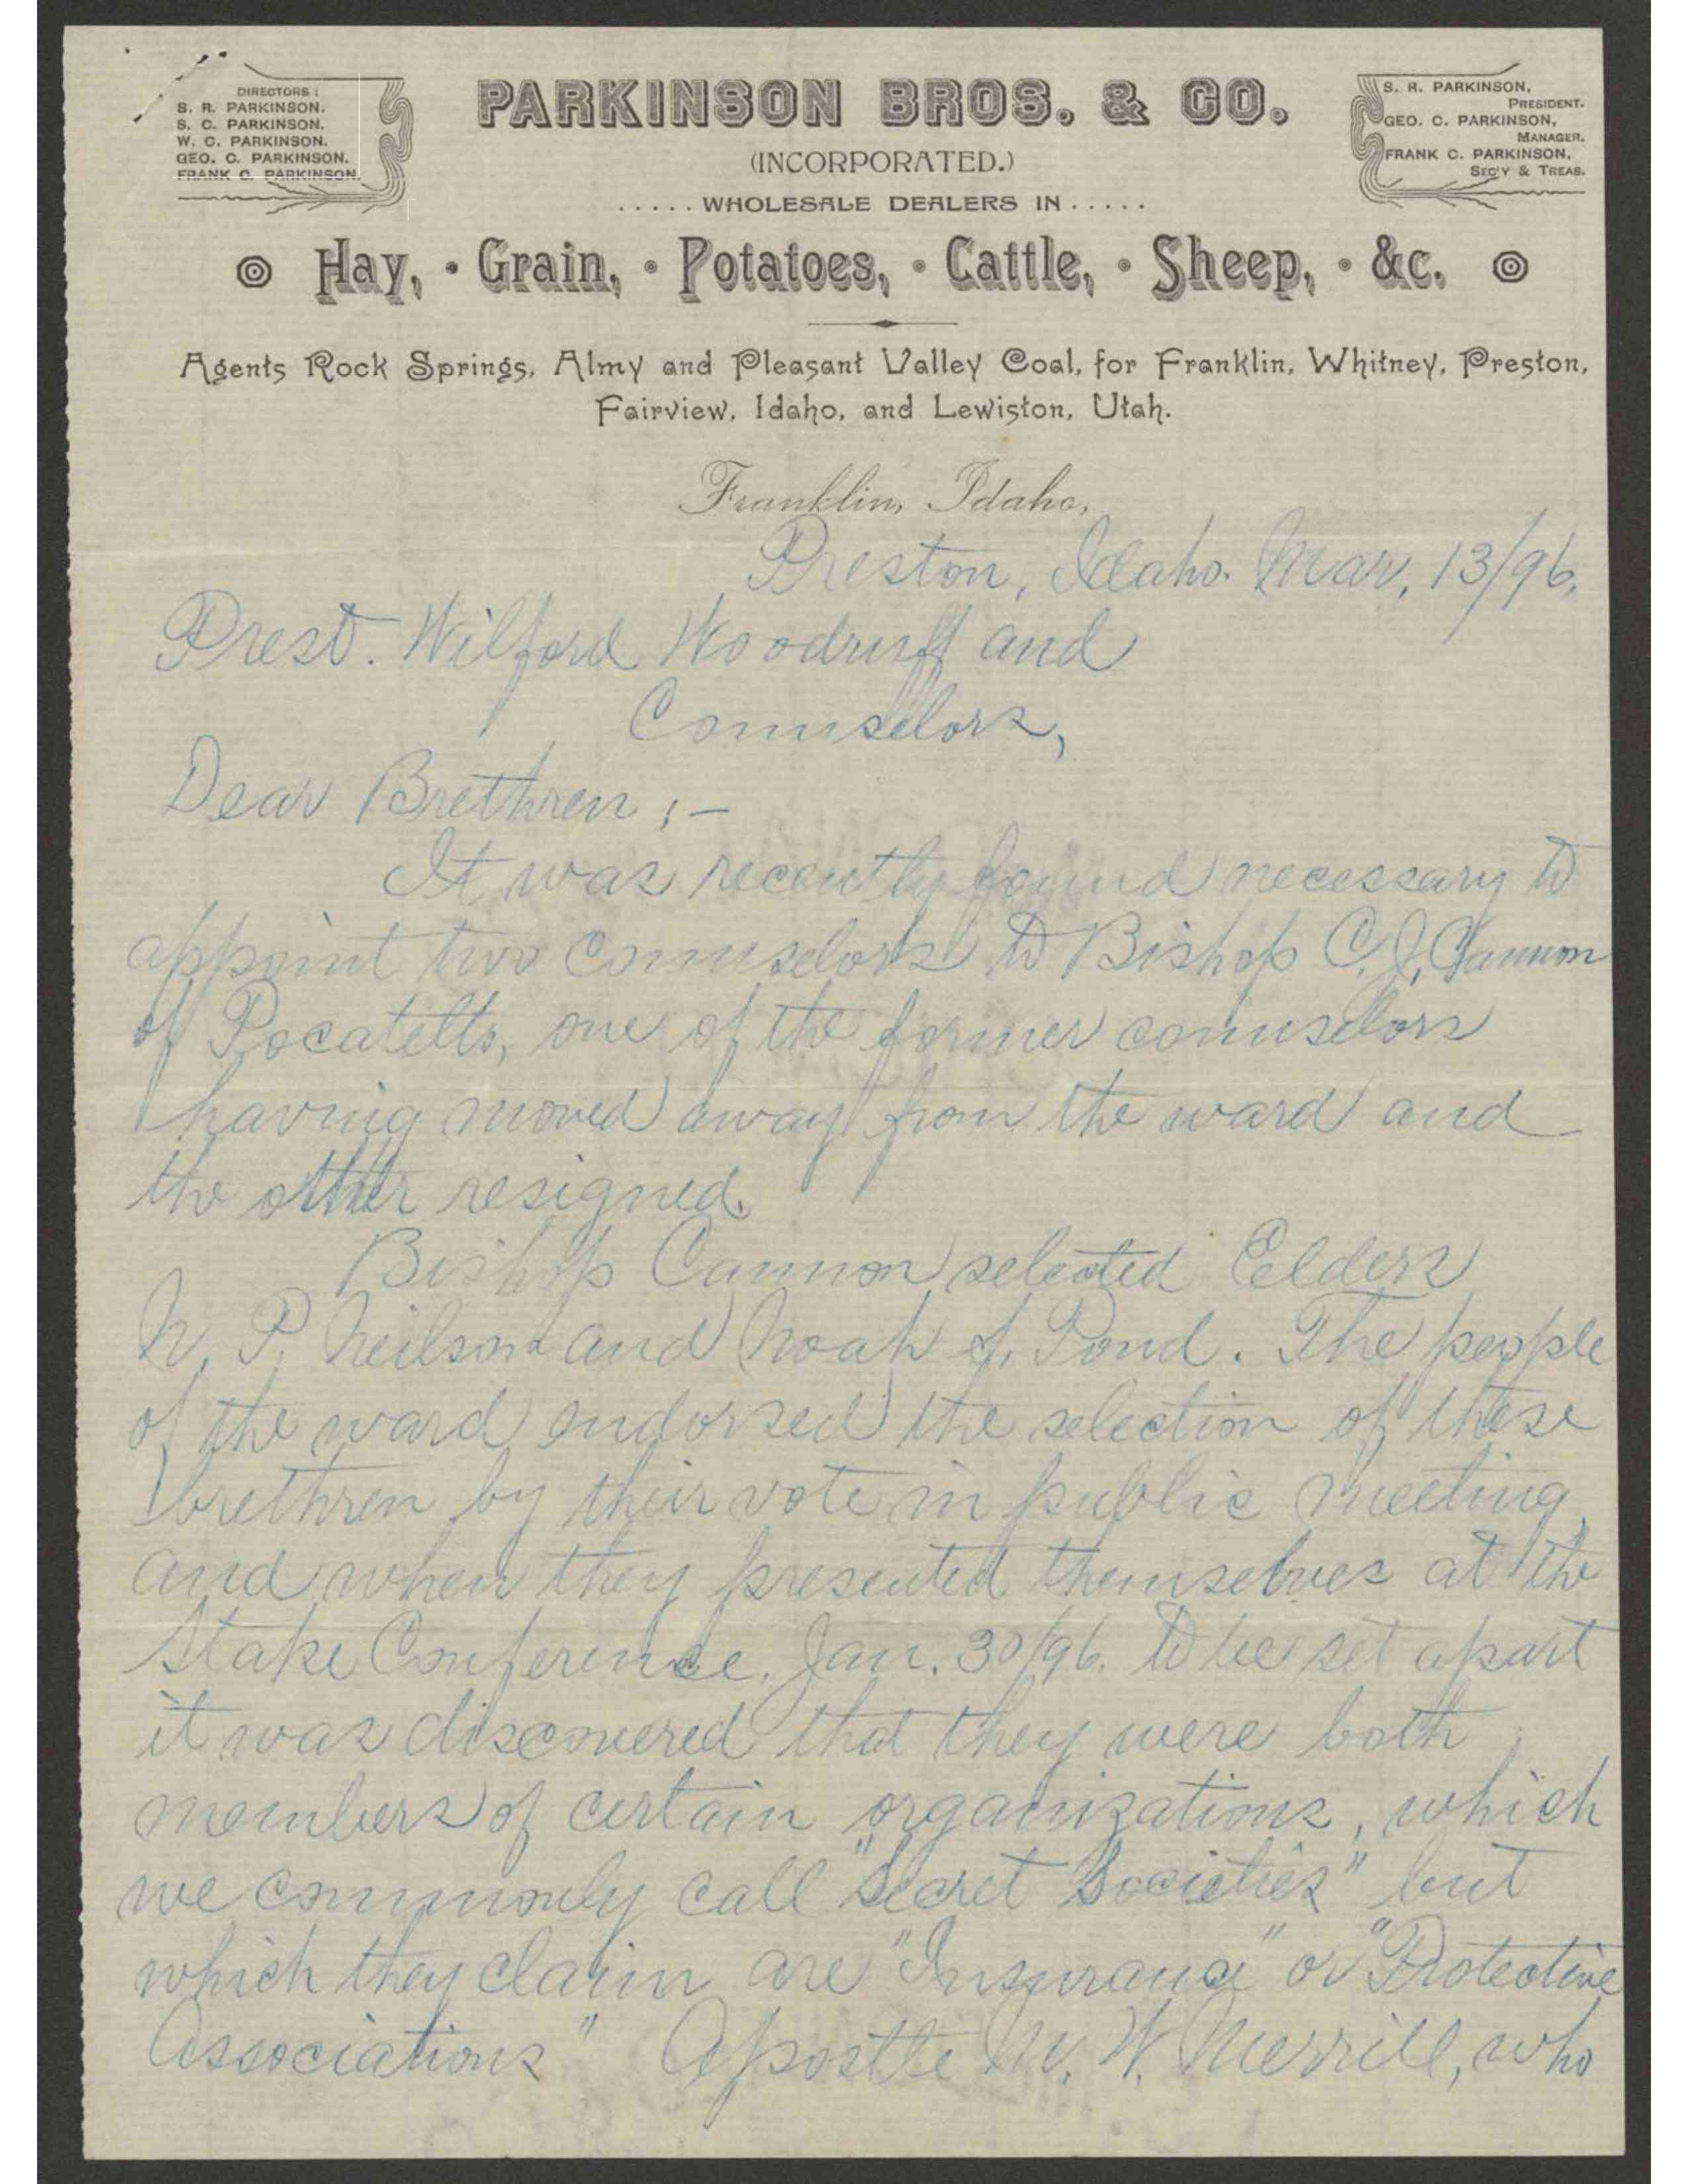 DIRECTORS:
S. R. PARKINSON.
S. C. PARKINSON.
W. C. PARKINSON.
GEO. C. PARKINSON.
FRANK C. PARKINSON.
PARKINSON BROS. & CO.
(INCORPORATED.)
..... WHOLESALE DEALERS IN .....
S. R. PARKINSON,
PRESIDENT.
GEO. C. PARKINSON,
MANAGER.
FRANK C. PARKINSON,
SEC'Y & TREAS.
Hay, · Grain, · Potatoes, · Cattle, · Sheep, · &c.
Agents Rock Springs, Almy and Pleasant Valley Coal, for Franklin, Whitney, Preston,
Fairview, Idaho, and Lewiston, Utah.
Franklin, Idaho,
Preston, Idaho. Mar, 13/96,
Prest. Wilford Woodruff and
Counselors,
Dear Brethren;-
It was recently found necessary to
appoint two Counselors to Bishop C. J. Cannon
of Pocatello, one of the former counselors
having moved away from the ward and
the other resigned.
Bishop Cannon selected Elders
N. P. Neilson and Noah S. Pond. The people
of the ward endorsed the selection of these
brethren by their vote in public meeting,
and when they presented themselves at the
Stake Conference, Jan. 30/96. to be set apart
it was discovered that they were both
members of certain organizations, which
we commonly call "Secret Societies" but
which they claim are "Insurance" or "Protective
Associations" Apostle M. W. Merrill, who